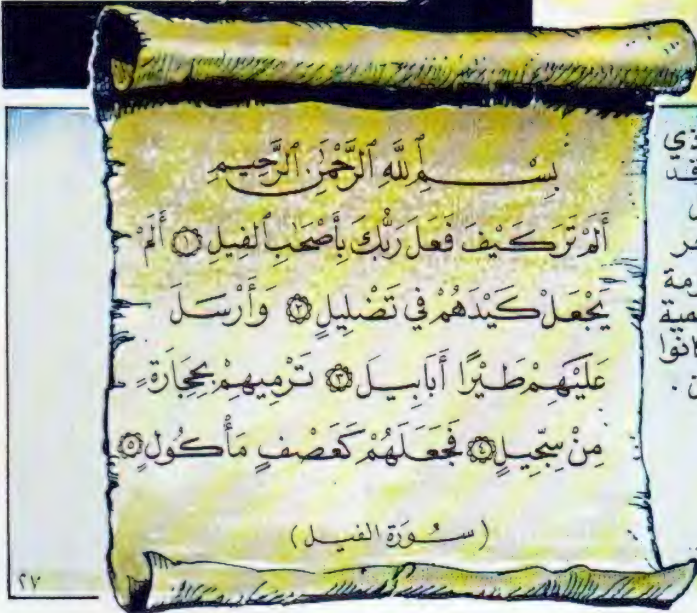 بِسْمِ ٱللَّهِ ٱلرَّحْمَٰنِ ٱلرَّحِيمِ
أَلَمْ تَرَ كَيْفَ فَعَلَ رَبُّكَ بِأَصْحَٰبِ ٱلْفِيلِ ١ أَلَمْ
يَجْعَلْ كَيْدَهُمْ فِي تَضْلِيلٍ ٢ وَأَرْسَلَ
عَلَيْهِمْ طَيْرًا أَبَابِيلَ ٣ تَرْمِيهِمْ بِحِجَارَةٍ
مِنْ سِجِّيلٍ ٤ فَجَعَلَهُمْ كَعَصْفٍ مَأْكُولٍ ٥
(سُورَة الفيل)
٢٧